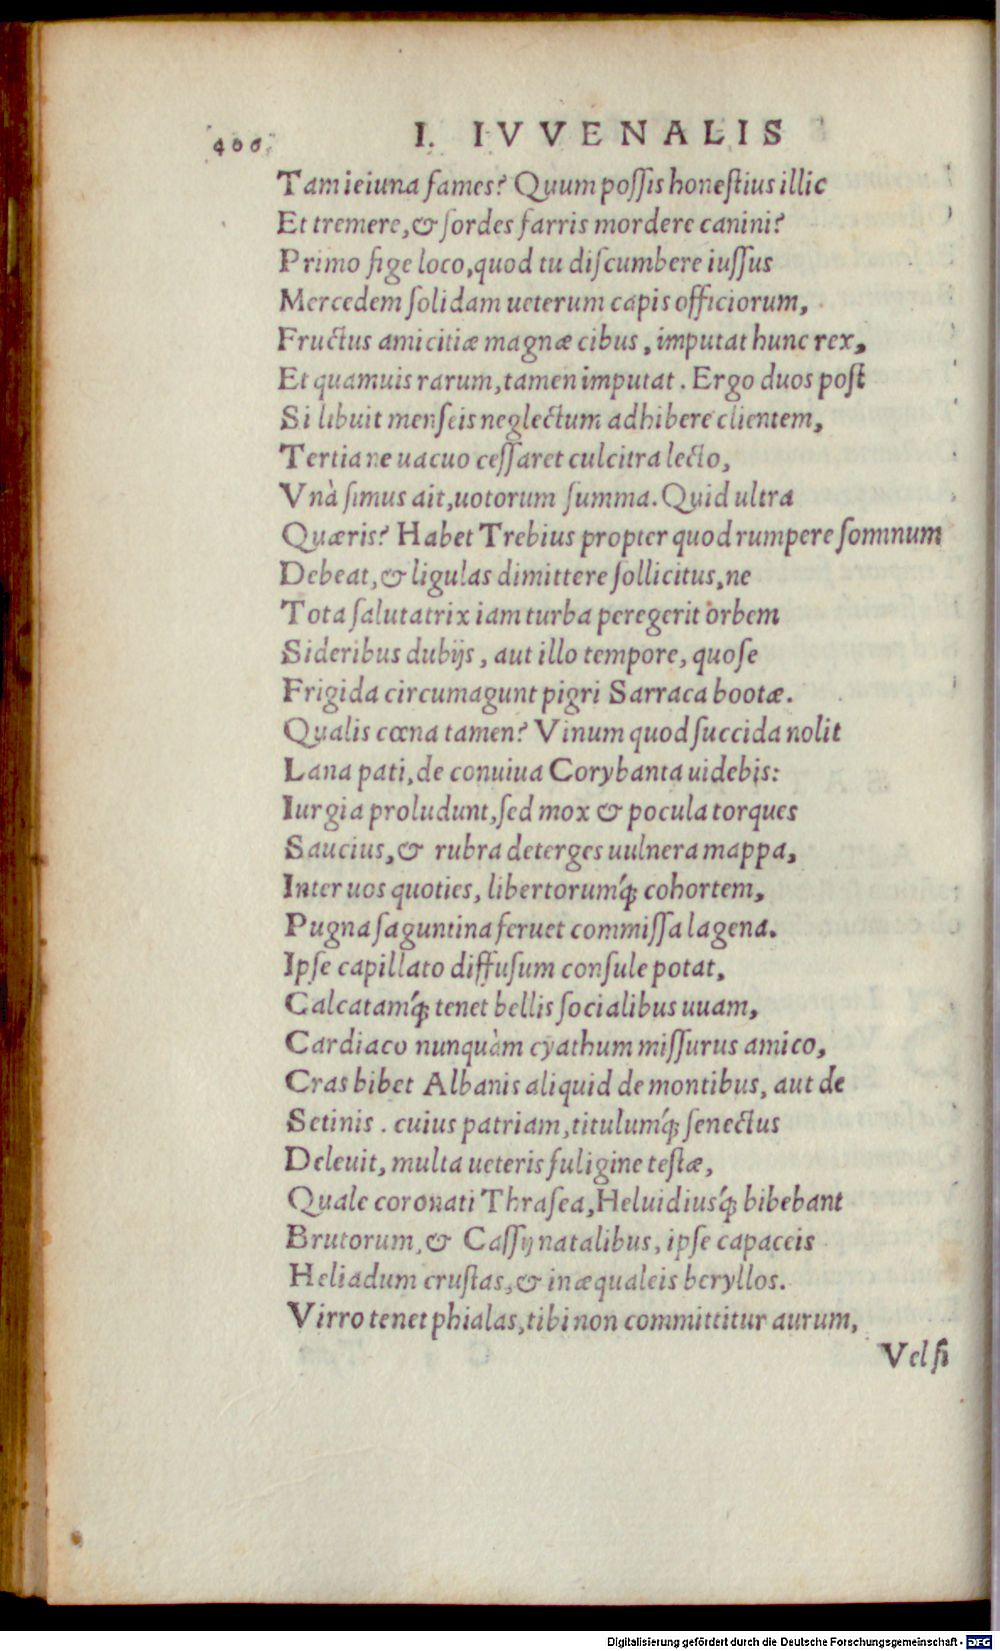 400 I. IVVENALIS
Tam ieiuna fames? Quum poſſis honeſtius illic
Et tremere, & ſordes farris mordere canini?
Primo fige loco, quod tu diſcumbere iuſſus
Mercedem ſolidam ueterum capis officiorum,
Fructus amicitiæ magnæ cibus, imputat hunc rex,
Et quamuis rarum, tamen imputat. Ergo duos poſt
Si libuit menſeis neglectum adhibere clientem,
Tertia ne uacuo ceſſaret culcitra lecto,
Vnà ſimus ait, uotorum ſumma. Quid ultra
Quæris? Habet Trebius propter quod rumpere ſomnum
Debeat, & ligulas dimittere ſollicitus, ne
Tota ſalutatrix iam turba peregerit orbem
Sideribus dubijs, aut illo tempore, quo ſe
Frigida circumagunt pigri Sarraca bootæ.
Qualis cœna tamen? Vinum quod ſuccida nolit
Lana pati, de conuiua Corybanta uidebis:
Iurgia proludunt, ſed mox & pocula torques
Saucius, & rubra deterges uulnera mappa,
Inter uos quoties, libertorumq́; cohortem,
Pugna ſaguntina feruet commiſſa lagena.
Ipſe capillato diffuſum conſule potat,
Calcatamq́; tenet bellis ſocialibus uuam,
Cardiaco nunquàm cyathum miſſurus amico,
Cras bibet Albanis aliquid de montibus, aut de
Setinis. cuius patriam, titulumq́; ſenectus
Deleuit, multa ueteris fuligine teſtæ,
Quale coronati Thraſea, Heluidiusq́; bibebant
Brutorum, & Caſſij natalibus, ipſe capaceis
Heliadum cruſtas, & inæqualeis beryllos.
Virro tenet phialas, tibi non committitur aurum,
Vel ſi
Digitalisierung gefördert durch die Deutsche Forschungsgemeinschaft - DFG